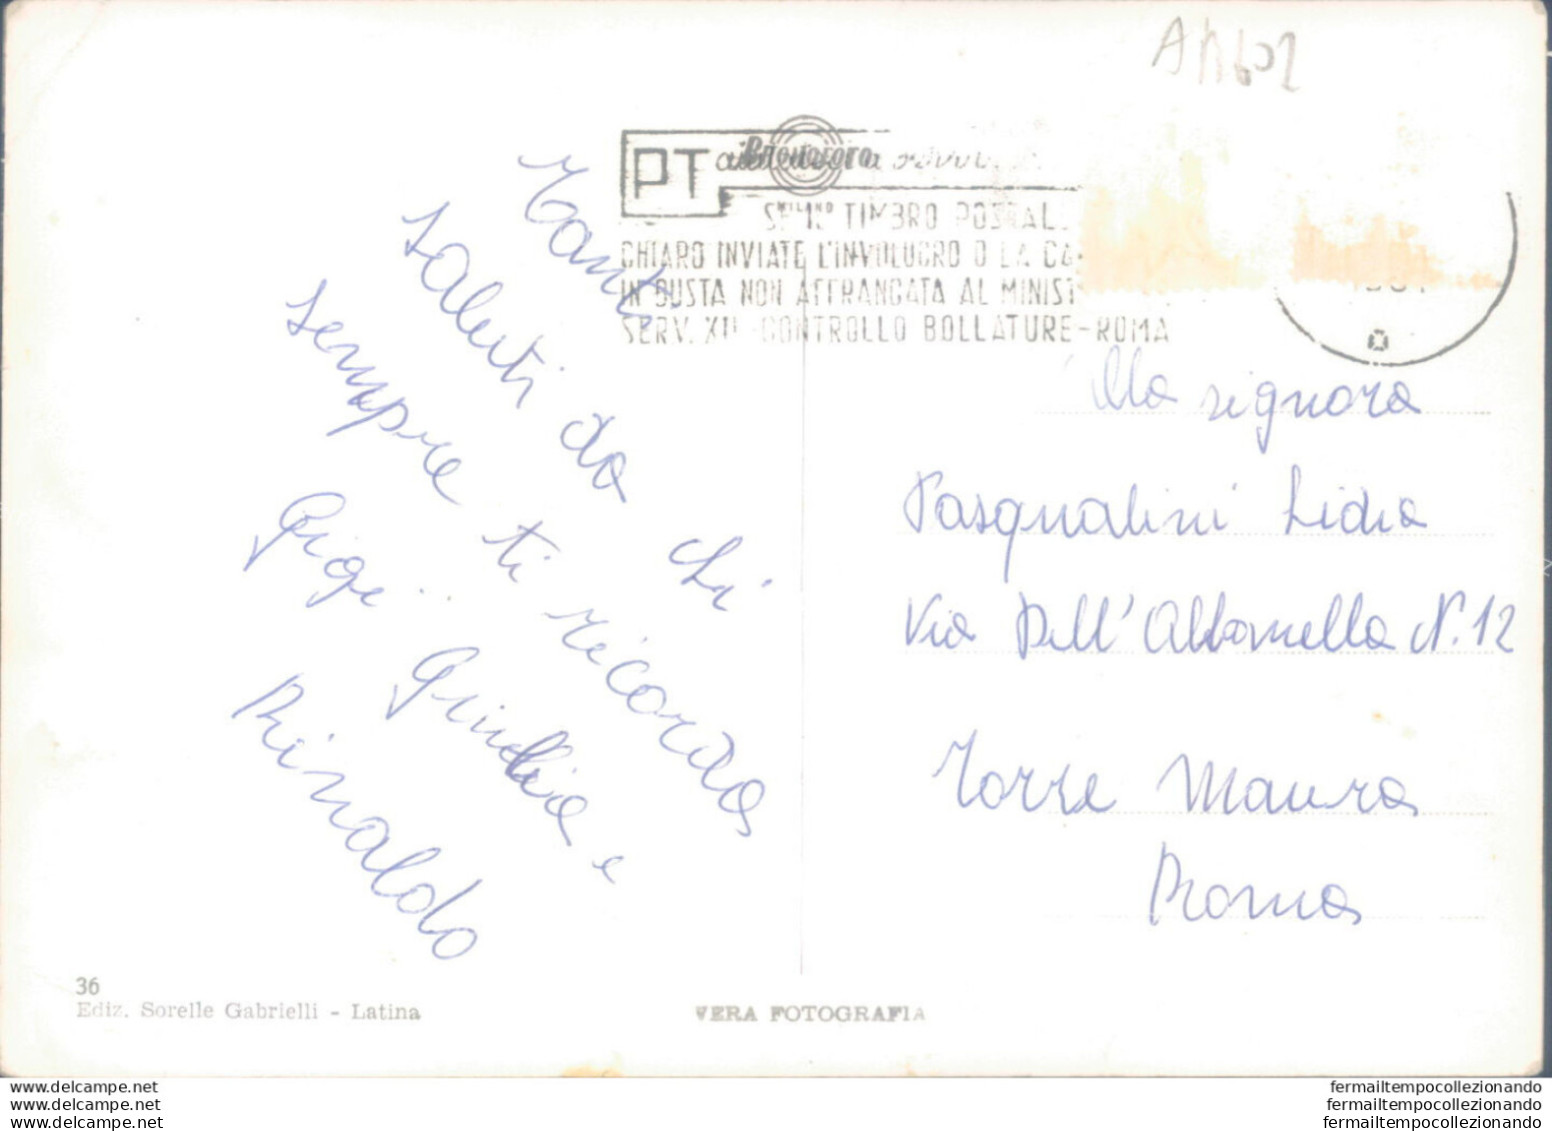 PT
SE IL TIMBRO POSTAL
CHIARO INVIATE L'INVOLUCRO O LA CA
IN BUSTA NON AFFRANCATA AL MINIST
SERV. XII CONTROLLO BOLLATURE-ROMA
MILANO
Tanti
saluti da chi
sempre ti ricorda
Gigi.. Giulia e
Rinaldo
Alla signora
Pasqualini Lidia
Via Dell'Albanella N.12
Torre Maura
Roma
36
Ediz. Sorelle Gabrielli - Latina
VERA FOTOGRAFIA
www.delcampe.net
www.delcampe.net
www.delcampe.net
fermailtempocollezionando
fermailtempocollezionando
fermailtempocollezionando